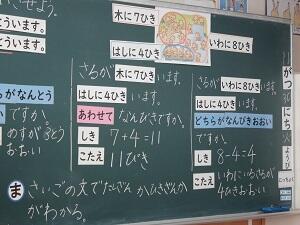 木に7ひき
はしに4ひき
いわに8ひき
います。
います。
さるが木に7ひきいます。
はしに4ひきいます。
あわせてなんびきですか。
しき 7+4=11
こたえ 11ぴき
さるがいわに8ひきいます。
はしに4ひきいます。
どちらがなんびきおおい
ですか。
しき 8-4=4
こたえ いわにいるさるが
4ひきおおい
がなんとう
ですか。
めすが3とう
おおい
がつ
にち
ようび
ま さいごの文でたしざんかひきざんか
がわかる。